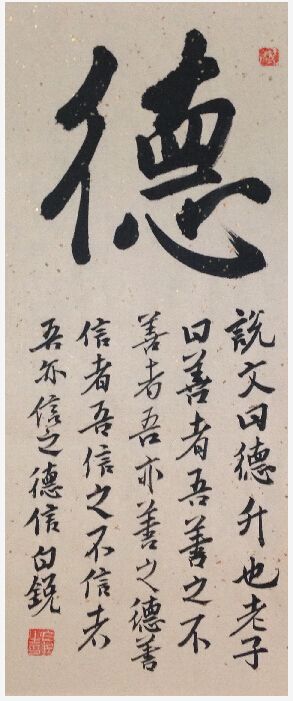 德
說文曰德升也老子
曰善者吾善之不
善者吾亦善之德善
信者吾信之不信者
吾亦信之德信白銳